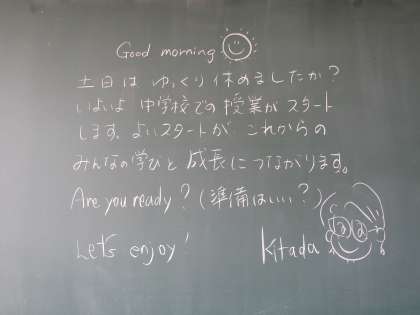 Good morning
土日は ゆっくり休めましたか?
いよいよ 中学校での 授業が スタート
します。よいスタートが これからの
みんなの学びと 成長に つながります。
Are you ready? (準備はいい?)
Let's enjoy! Kitada